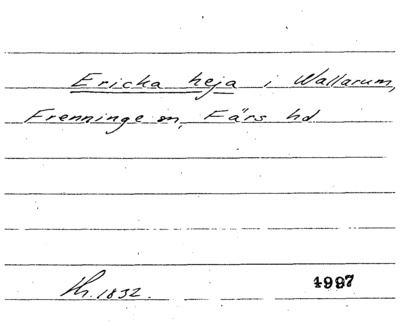 Ericka heja i Wallarum,
Frenninge sn, Färs hd
Hr. 1832. 4997